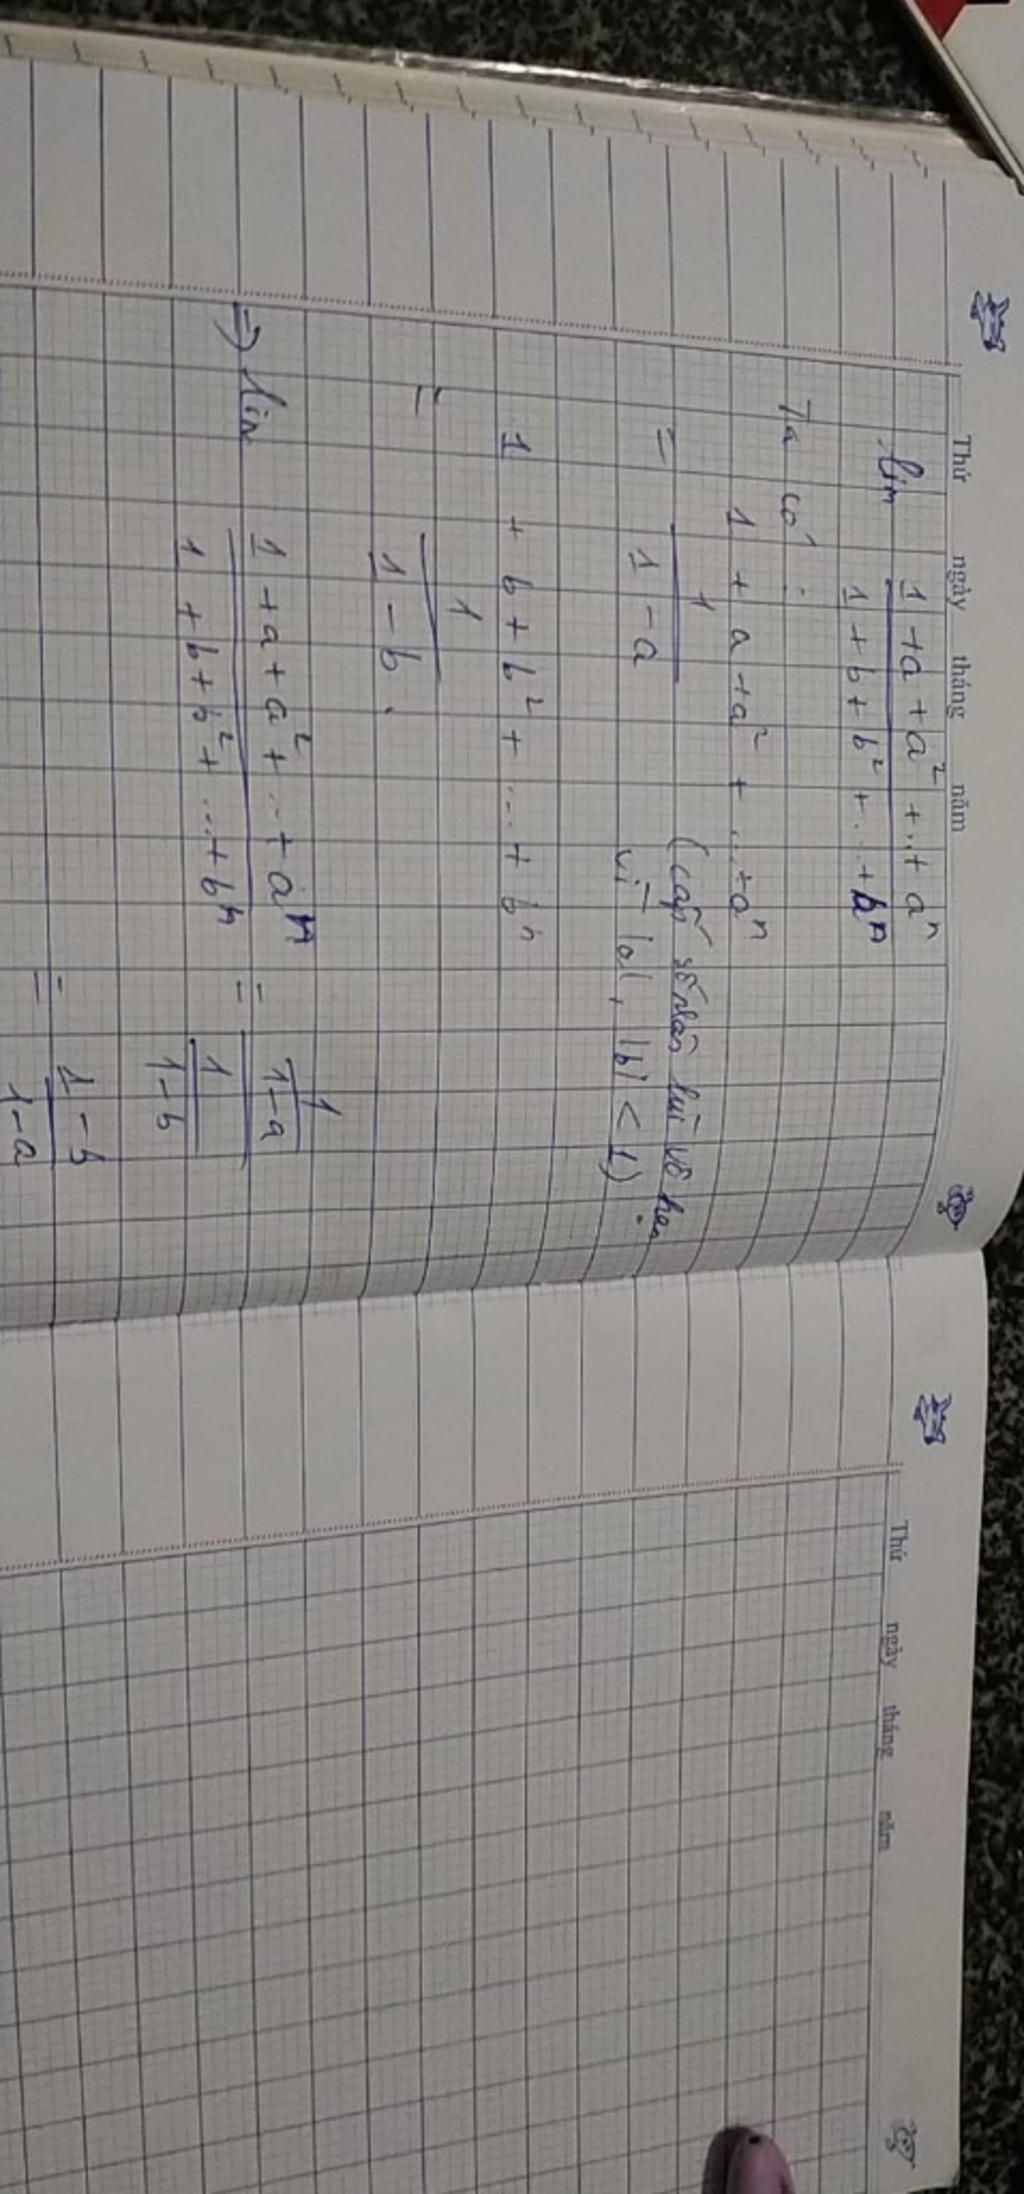 Thứ ngày tháng năm
lim
1 + a + a² + ... + aⁿ
1 + b + b² + ... + bⁿ
Ta có :
1 + a + a² + ... + aⁿ
= 1
1 - a
(cấp số nhân lùi vô hạn
vì |a|, |b| < 1)
1 + b + b² + ... + bⁿ
= 1
1 - b .
=> lim
1 + a + a² + ... + aⁿ
1 + b + b² + ... + bⁿ
=
1
1 - a
1
1 - b
=
1 - b
1 - a
Thứ ngày tháng năm